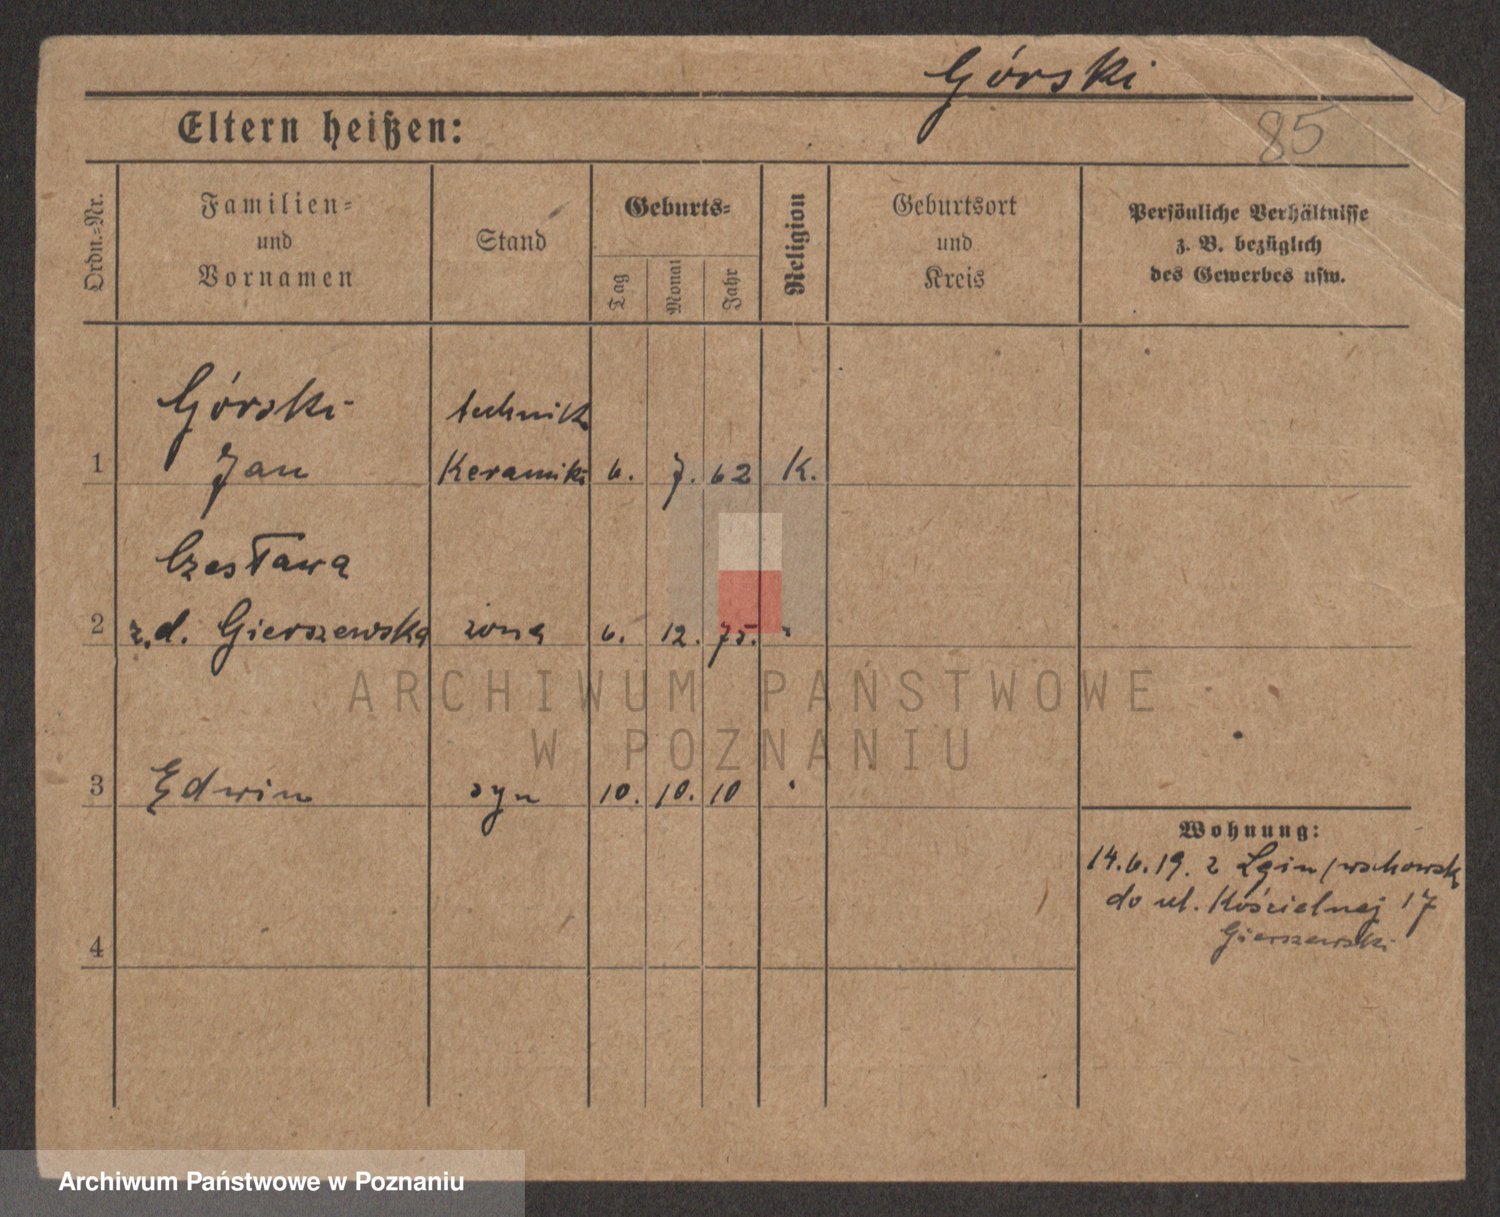 Górski
85
Eltern heißen:
Ordn.-Nr.
Familien-
und
Vornamen
Stand
Geburts-
Tag
Monat
Jahr
Religion
Geburtsort
und
Kreis
Persönliche Verhältnisse
z. B. bezüglich
des Gewerbes usw.
Górski technik
1 Jan Keramiki 6. 7. 62 K.
Czesława
2 z.d. Gierszewska żona 6. 12. 75. "
3 Edwin syn 10. 10. 10 "
Wohnung:
14.6.19. z Lgin/wschowsk
do ul. Kościelnej 17
Gierszewski
4
ARCHIWUM PAŃSTWOWE
W POZNANIU
Archiwum Państwowe w Poznaniu